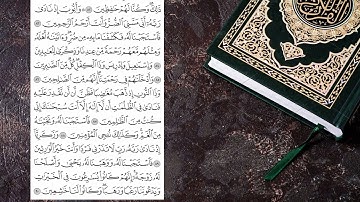 ذَٰلِكَ وَكُنَّا لَهُمْ حَٰفِظِينَ ٨٢ وَأَيُّوبَ إِذْ نَادَىٰ
رَبَّهُۥٓ أَنِّي مَسَّنِيَ ٱلضُّرُّ وَأَنتَ أَرْحَمُ ٱلرَّٰحِمِينَ ٨٣
فَٱسْتَجَبْنَا لَهُۥ فَكَشَفْنَا مَا بِهِۦ مِن ضُرٍّ وَءَاتَيْنَٰهُ أَهْلَهُۥ
وَمِثْلَهُم مَّعَهُمْ رَحْمَةً مِّنْ عِندِنَا وَذِكْرَىٰ لِلْعَٰبِدِينَ ٨٤
وَإِسْمَٰعِيلَ وَإِدْرِيسَ وَذَا ٱلْكِفْلِ كُلٌّ مِّنَ ٱلصَّٰبِرِينَ ٨٥
وَأَدْخَلْنَٰهُمْ فِي رَحْمَتِنَآ إِنَّهُم مِّنَ ٱلصَّٰلِحِينَ ٨٦
وَذَا ٱلنُّونِ إِذ ذَّهَبَ مُغَٰضِبًا فَظَنَّ أَن لَّن نَّقْدِرَ عَلَيْهِ
فَنَادَىٰ فِي ٱلظُّلُمَٰتِ أَن لَّآ إِلَٰهَ إِلَّآ أَنتَ سُبْحَٰنَكَ إِنِّي
كُنتُ مِنَ ٱلظَّٰلِمِينَ ٨٧ فَٱسْتَجَبْنَا لَهُۥ وَنَجَّيْنَٰهُ
مِنَ ٱلْغَمِّ وَكَذَٰلِكَ نُـۨجِي ٱلْمُؤْمِنِينَ ٨٨ وَزَكَرِيَّآ
إِذْ نَادَىٰ رَبَّهُۥ رَبِّ لَا تَذَرْنِي فَرْدًا وَأَنتَ خَيْرُ ٱلْوَٰرِثِينَ ٨٩
فَٱسْتَجَبْنَا لَهُۥ وَوَهَبْنَا لَهُۥ يَحْيَىٰ وَأَصْلَحْنَا
لَهُۥ زَوْجَهُۥٓ إِنَّهُمْ كَانُوا۟ يُسَٰرِعُونَ فِي ٱلْخَيْرَٰتِ
وَيَدْعُونَنَا رَغَبًا وَرَهَبًا وَكَانُوا۟ لَنَا خَٰشِعِينَ ٩٠